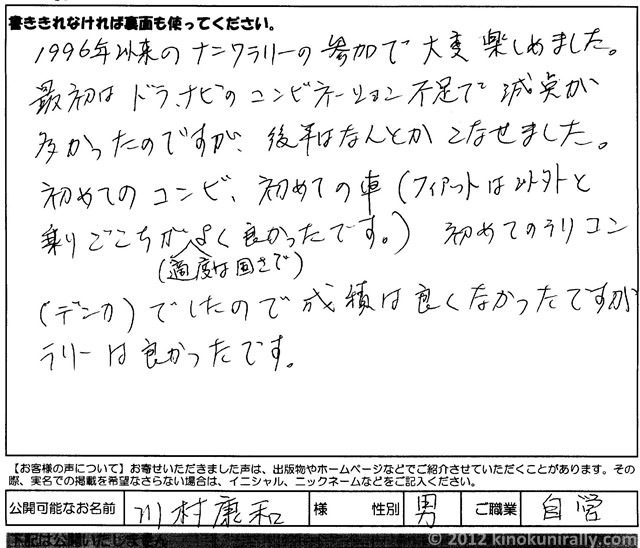 書ききれなければ裏面も使ってください。
1996年以来のナニワラリーの参加で大変楽しめました。
最初はドラ、ナビのコンビネーション不足で減点が
多かったのですが、後半はなんとかこなせました。
初めてのコンビ、初めての車(フィアットは以外と
乗りごこちがよく良かったです。) 初めてのラリコン
(適度な固さで)
(デンカ)でしたので成績は良くなかったですが
ラリーは良かったです。
【お客様の声について】お寄せいただきました声は、出版物やホームページなどでご紹介させていただくことがあります。その
際、実名での掲載を希望なさらない場合は、イニシャル、ニックネームなどをご記入ください。
公開可能なお名前 川村康和 様 性別 男 ご職業 自営
下記は公開いたしません
© 2012 kinokunirally.com